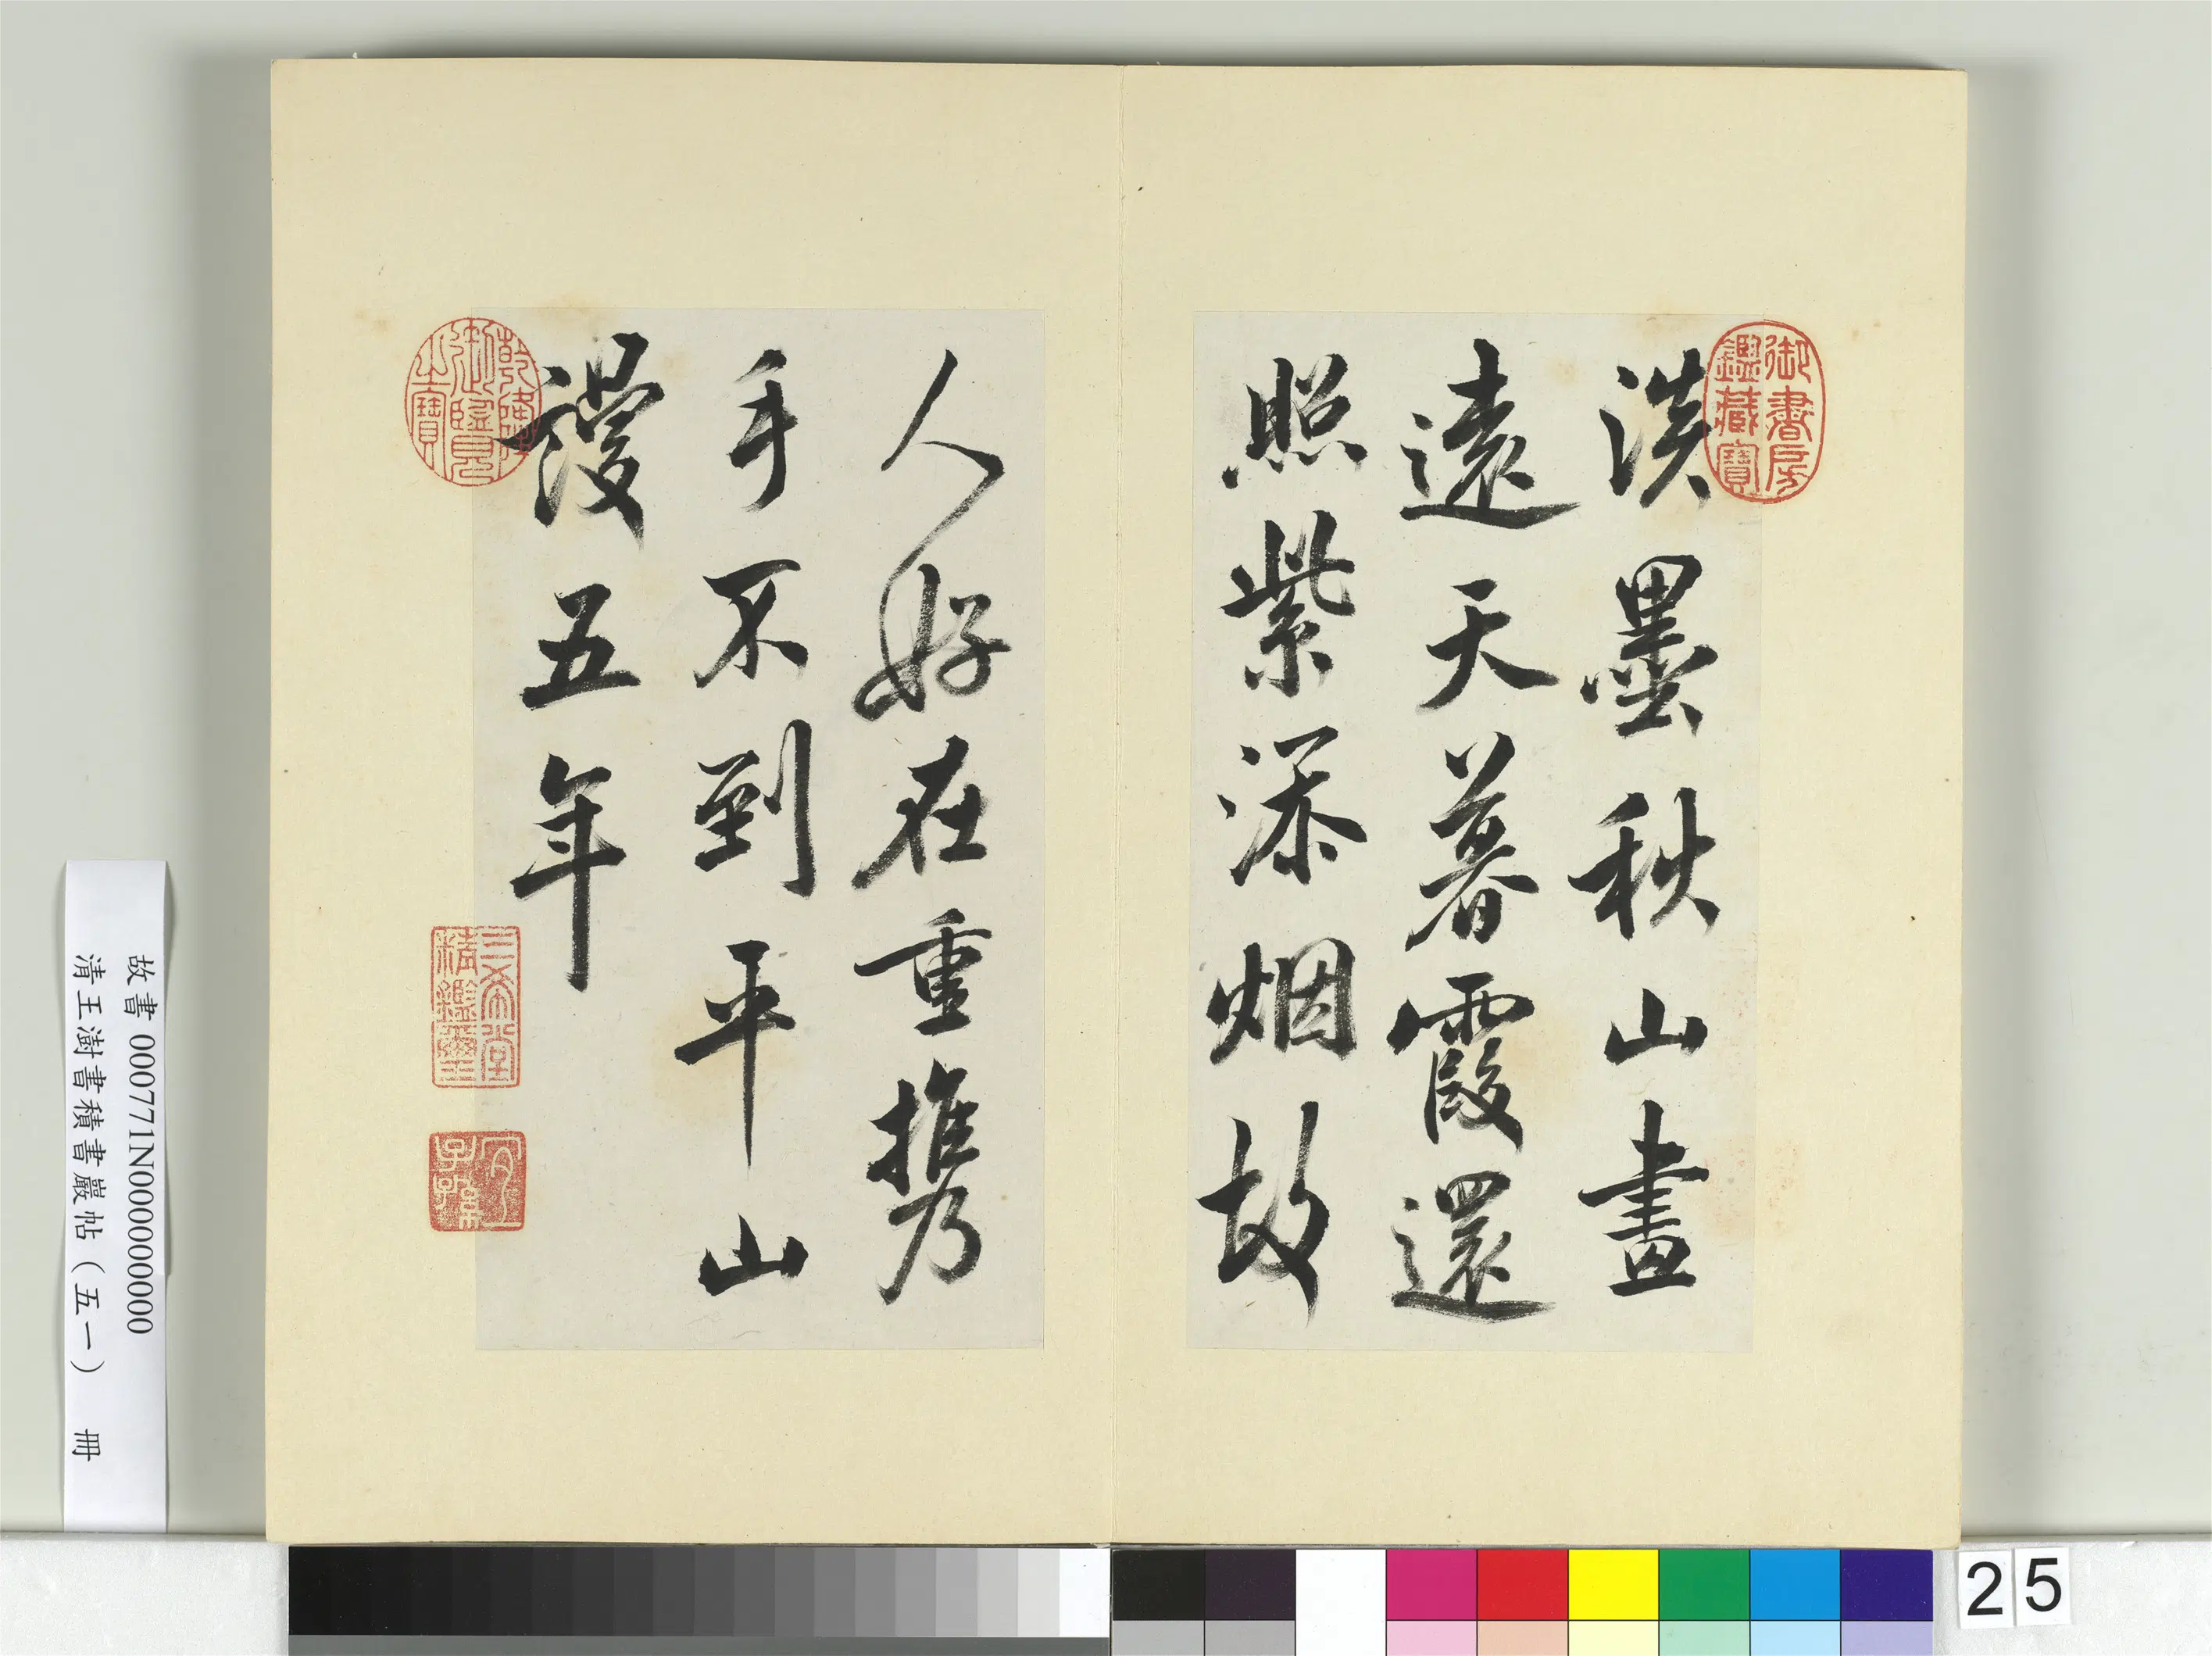 淡墨秋山畫
遠天暮霞還
照紫添烟故
人好在重携
手不到平山
謾五年
御書房
鑑藏寶
乾隆
御覽
之寶
三希堂
精鑑璽
宜
子孫
故書 000771N000000000
清王澍書積書巖帖（五一） 冊
25